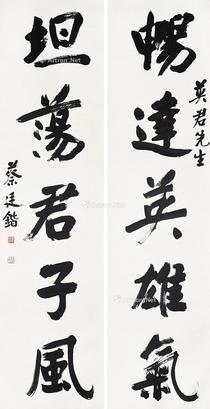 英君先生
暢達英雄氣
坦蕩君子風
蔡廷鍇